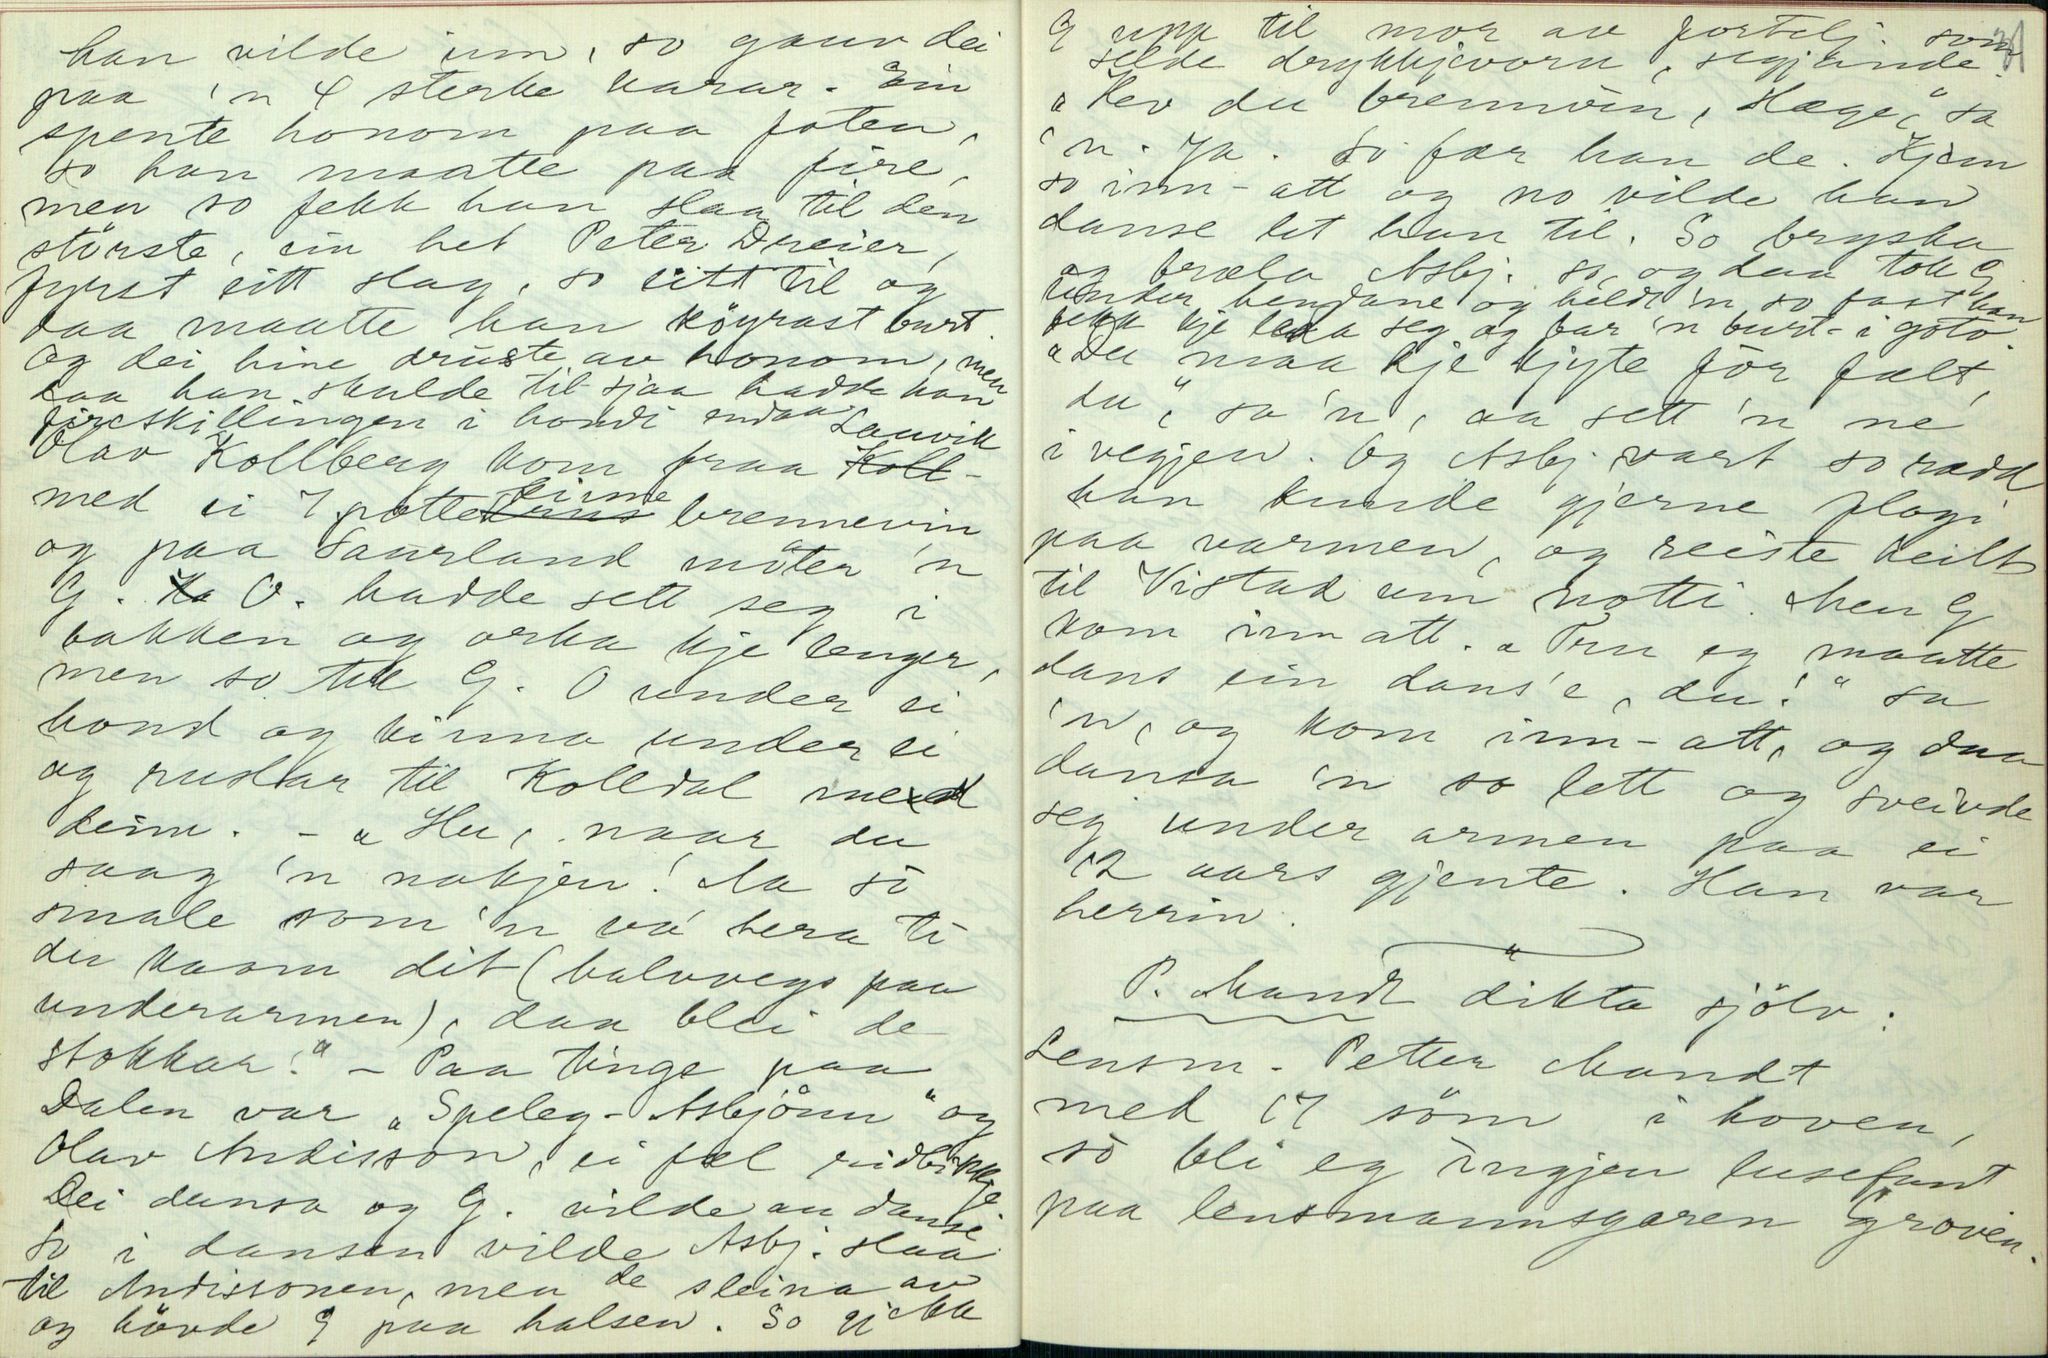 han vilde im, so gauv dei
paa 'n 4 sterke karar. Ein
spente honom paa foten,
so han maatte paa fire,
men so fekk han slaa til den
störste, ein het Peter Dreier,
fyrst eitt slag, so eitt til og
daa maatte han köyrast burt.
og dei hine druste av honom, men
daa han skulde til sjaa hadde han
fireskillingen i hondi endaa
Olav Kollberg kom fraa Lauvik
med ei 7 potte kinne brennevin
og paa Saurland möter 'n
G. O. hadde sett seg i
bakken og orka kje lenger,
men so tek G. O under ei
hond og kinna under ei
og ruslar til Kolldal med
deim. - „Hu, naar du
saag 'n nakjen! Aa so
smale som 'n va hera ti
du kaam dit (halvvegs paa
underarmen), daa blei de
stokkar!" - Paa tinge paa
Dalen var „Speleg-Asbjönn" og
Olav Andisson, ei fæl ridbikkje
Dei dansa og G. vilde au danse
So i dansen vilde Asbj. slaa
til Andissonen, men de sleina av
og hövde G paa halsen. So gjekk
G upp til mor av fortelj. som
selde drykkjevoru, segjande
„Hev du brennvin, Hæge," sa
'n. Ja. So fær han de. Kjem
so inn-att og no vilde han
danse let han til. So bryska
og bræla Asbj. so, og daa tok G
under hendane og heldt 'n so fast han
fekk kje leda seg og bar 'n burt-i goto.
„Du maa kje kjyte för fælt,
du", sa 'n, aa sett 'n ne
i vegjen. Og Asbj. vart so rædd
han kunde gjerne flogi
paa varmen, og reiste heilt
til Vistad um notti. Men G
kom inn att. „Tru eg maatte
dans ein dans'e, du!" sa
'n, og kom inn-att, og daa
dansa 'n so lett og sveivde
seg under armen paa ei
12 aars gjente. Han var
herrin.
P. Mandt dikta sjölv:
Lensm. Petter Mandt
med 17 söm i hoven,
so bli eg ingjen lusefant
paa lensmannsgaren Groven.